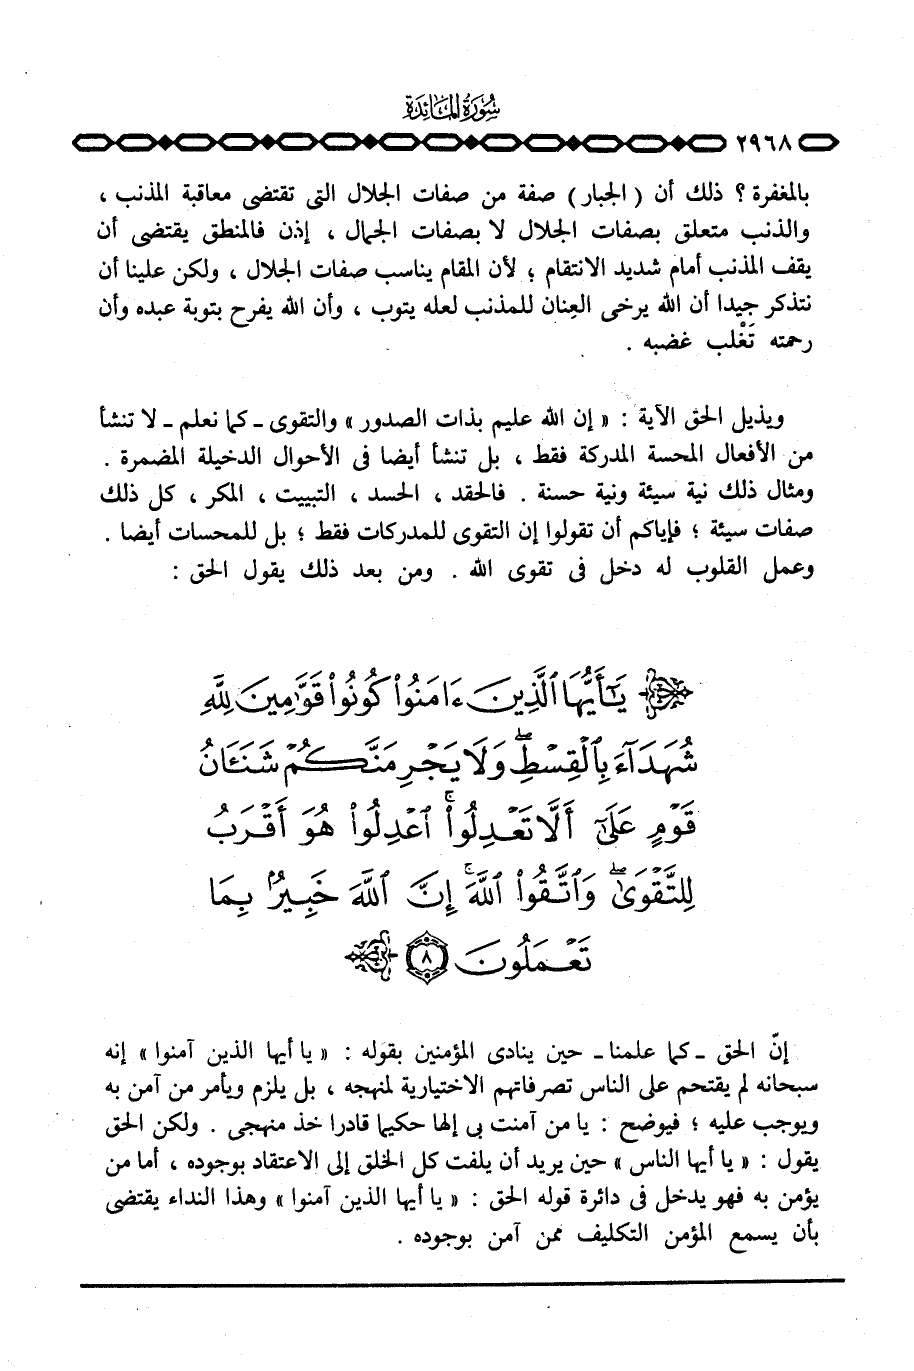 سُورَةُ المَائِدَة
٢٩٦٨
بالمغفرة ؟ ذلك أن ( الجبار ) صفة من صفات الجلال التى تقتضى معاقبة المذنب ،
والذنب متعلق بصفات الجلال لا بصفات الجمال ، إذن فالمنطق يقتضى أن
يقف المذنب أمام شديد الانتقام ؛ لأن المقام يناسب صفات الجلال ، ولكن علينا أن
نتذكر جيدا أن الله يرخى العِنان للمذنب لعله يتوب ، وأن الله يفرح بتوبة عبده وأن
رحمته تَغْلب غضبه .
ويذيل الحق الآية : « إن الله عليم بذات الصدور » والتقوى ـ كما نعلم ـ لا تنشأ
من الأفعال المحسة المدركة فقط ، بل تنشأ أيضا فى الأحوال الدخيلة المضمرة .
ومثال ذلك نية سيئة ونية حسنة . فالحقد ، الحسد ، التبييت ، المكر ، كل ذلك
صفات سيئة ؛ فإياكم أن تقولوا إن التقوى للمدركات فقط ؛ بل للمحسات أيضا .
وعمل القلوب له دخل فى تقوى الله . ومن بعد ذلك يقول الحق :
يَٰٓأَيُّهَا ٱلَّذِينَ ءَامَنُوا۟ كُونُوا۟ قَوَّٰمِينَ لِلَّهِ
شُهَدَآءَ بِٱلْقِسْطِ ۖ وَلَا يَجْرِمَنَّكُمْ شَنَـَٔانُ
قَوْمٍ عَلَىٰٓ أَلَّا تَعْدِلُوا۟ ۚ ٱعْدِلُوا۟ هُوَ أَقْرَبُ
لِلتَّقْوَىٰ ۖ وَٱتَّقُوا۟ ٱللَّهَ ۚ إِنَّ ٱللَّهَ خَبِيرٌۢ بِمَا
تَعْمَلُونَ ٨
إنّ الحق ـ كما علمنا ـ حين ينادى المؤمنين بقوله : « يا أيها الذين آمنوا » إنه
سبحانه لم يقتحم على الناس تصرفاتهم الاختيارية لمنهجه ، بل يلزم ويأمر من آمن به
ويوجب عليه ؛ فيوضح : يا من آمنت بى إلها حكيما قادرا خذ منهجى . ولكن الحق
يقول : « يا أيها الناس » حين يريد أن يلفت كل الخلق إلى الاعتقاد بوجوده ، أما من
يؤمن به فهو يدخل فى دائرة قوله الحق : « يا أيها الذين آمنوا » وهذا النداء يقتضى
بأن يسمع المؤمن التكليف ممن آمن بوجوده .